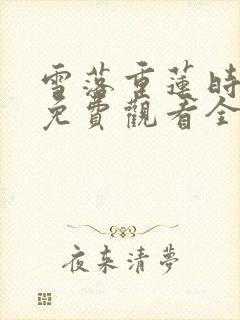 雪落重蓮時
免費觀看全
夜來清夢